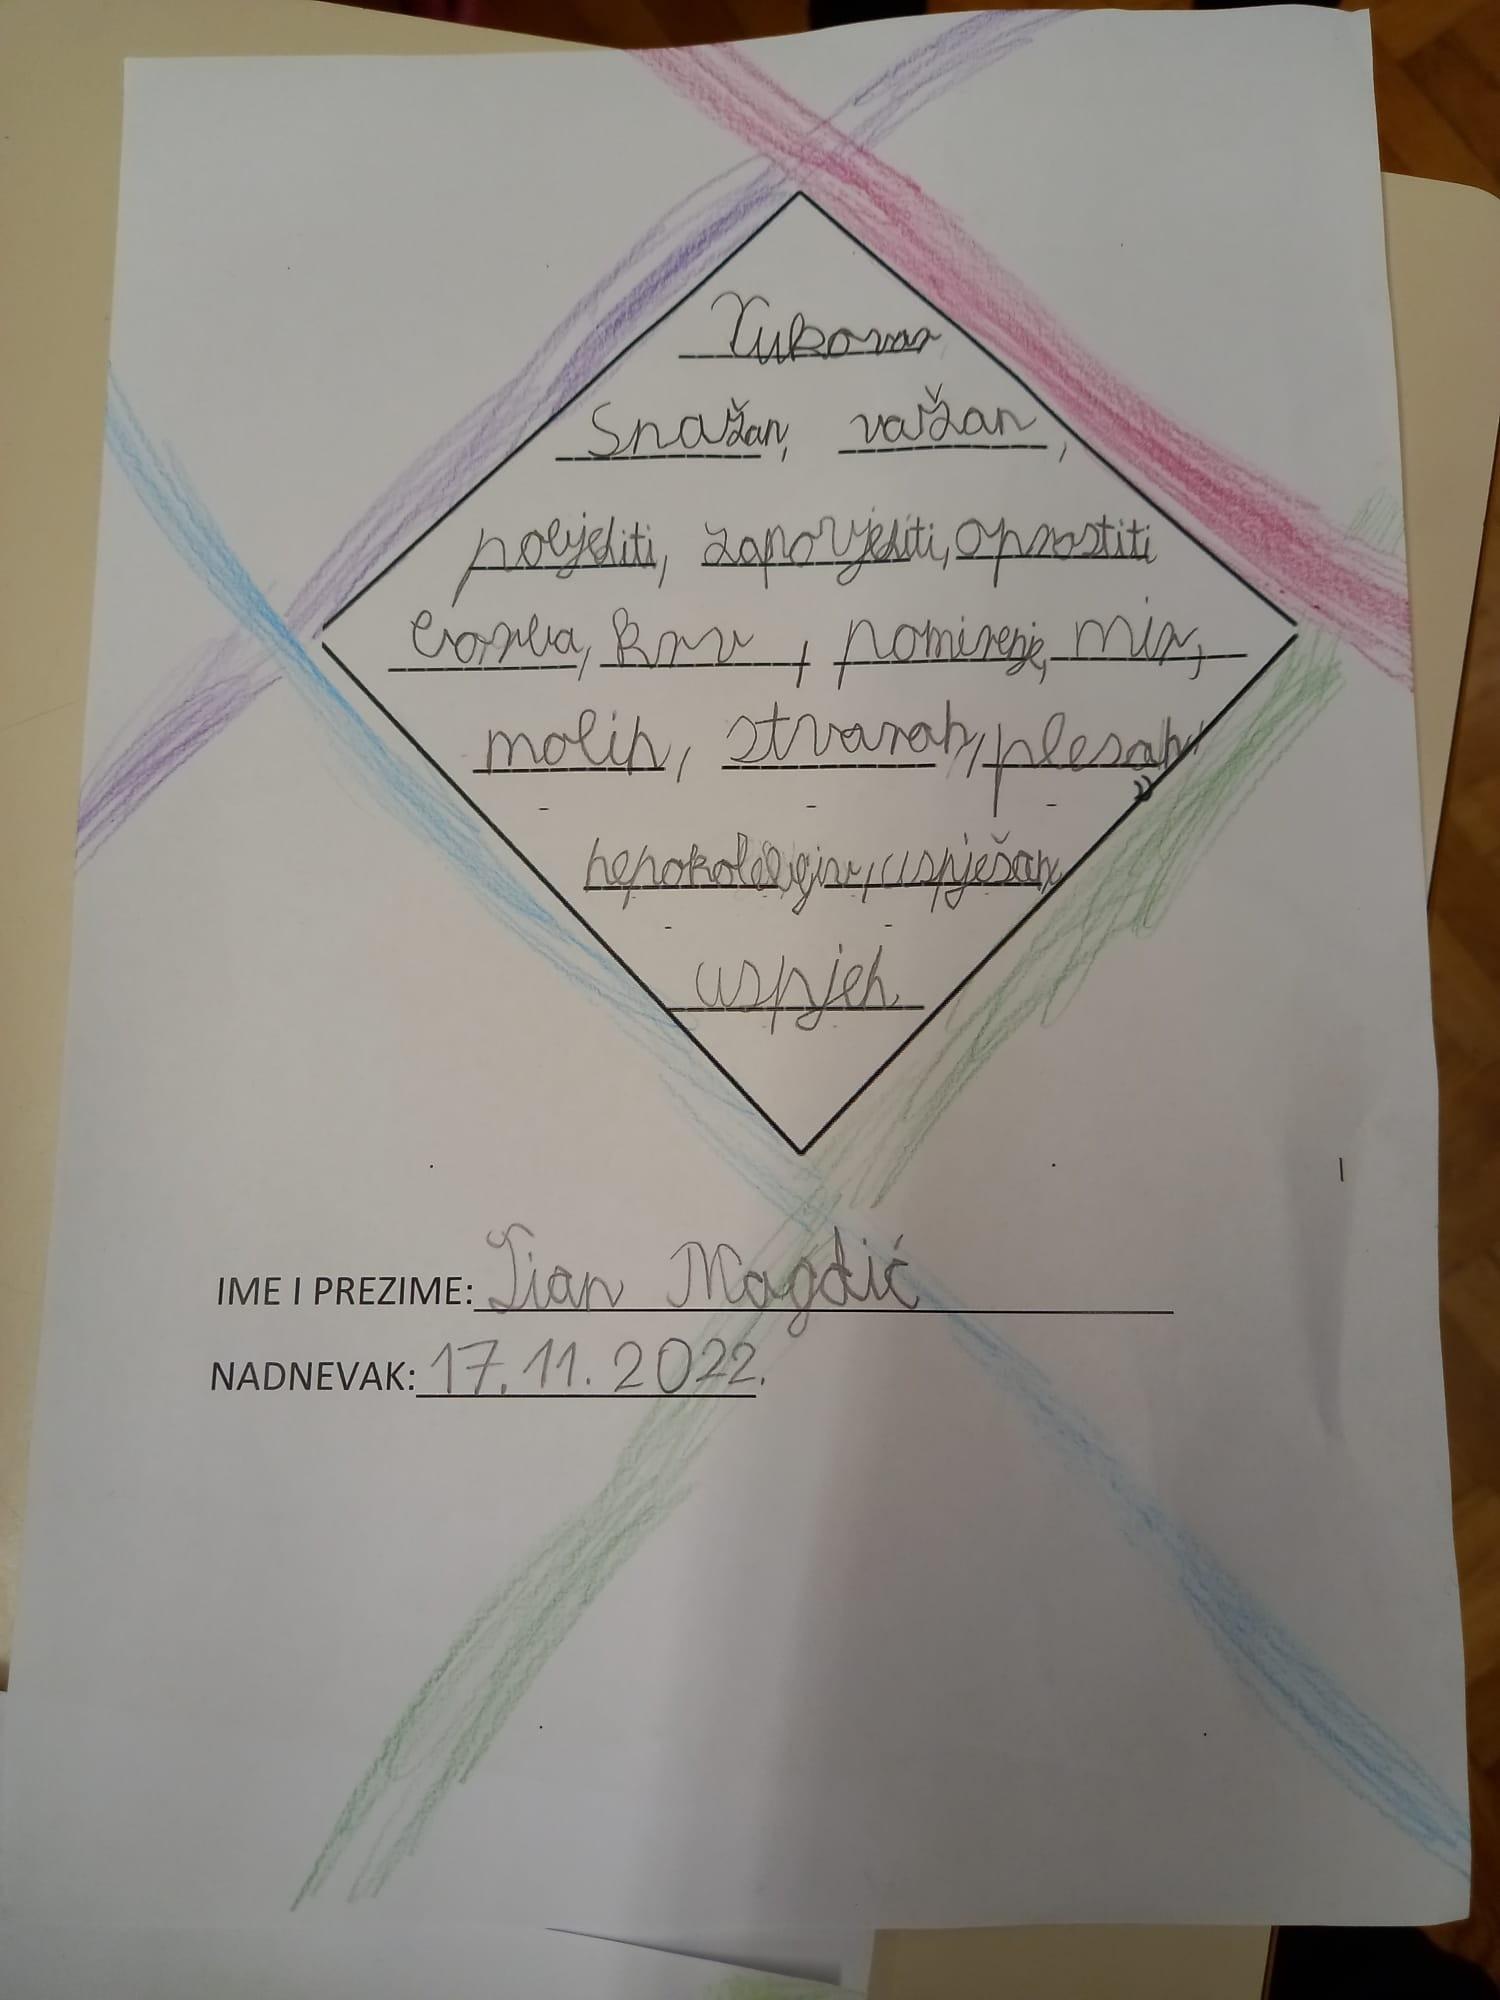 Vukovar
Snažan, važan,
pobjediti, zapovjediti, oprostiti
borba, krv, pomirenje, mir,
molih, stvarah, plesah,
nepokolebljiv, uspješan,
uspjeh
IME I PREZIME: Tian Magdić
NADNEVAK: 17.11.2022.